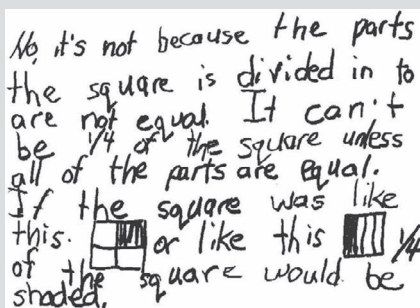 No, it's not because the parts
the square is divided in to
are not equal. It can't
be 1/4 of the square unless
all of the parts are equal.
If the square was like
this. or like this 1/4
of the square would be
shaded.